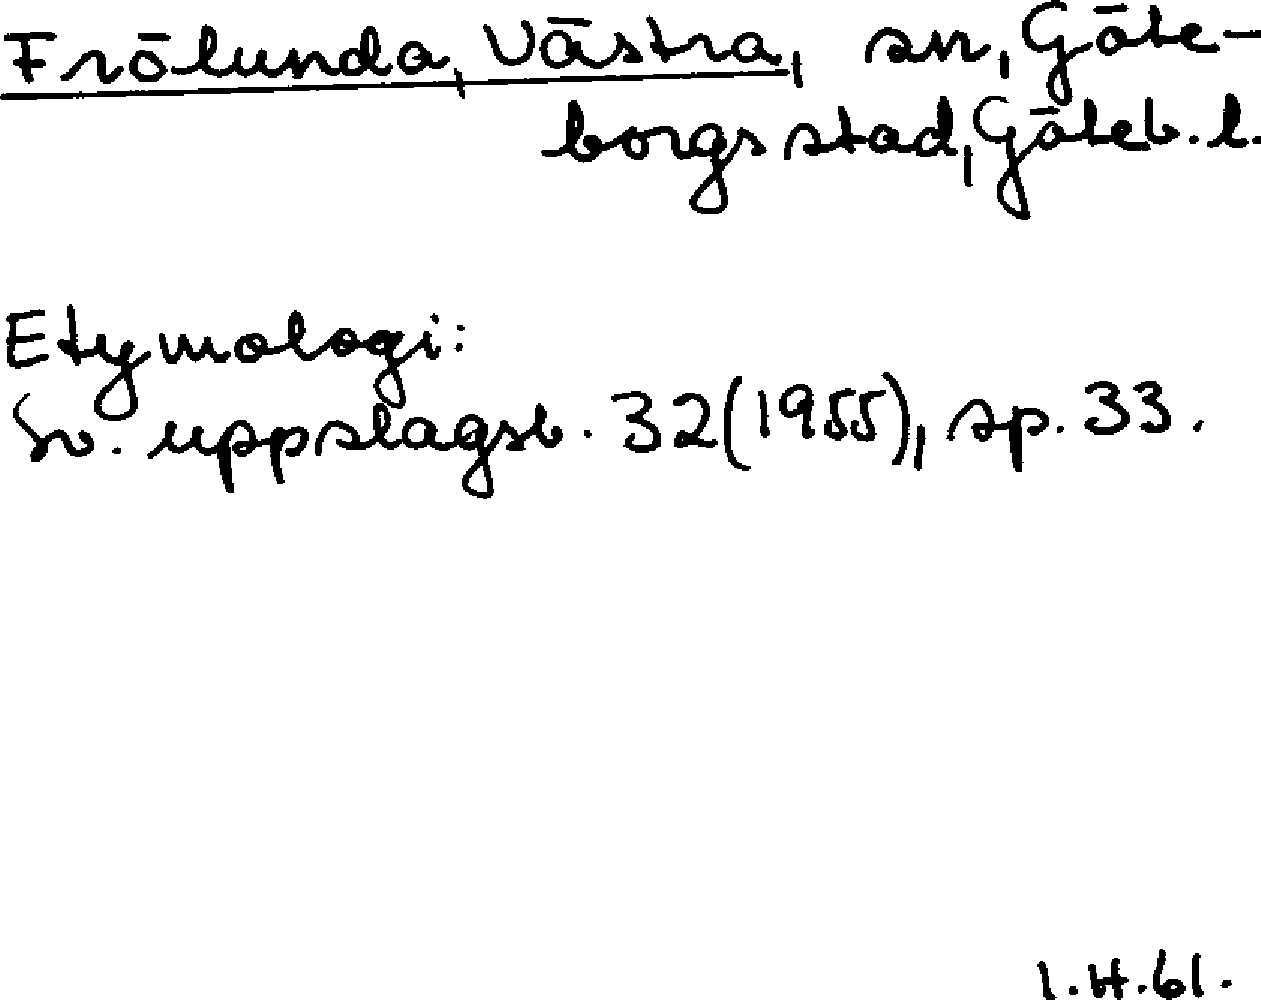 Frölunda, Västra, sn, Göte-
borgs stad, Göteb. l.
Etymologi:
Sv. uppslagsb. 32 (1955), sp. 33.
I.H.61.